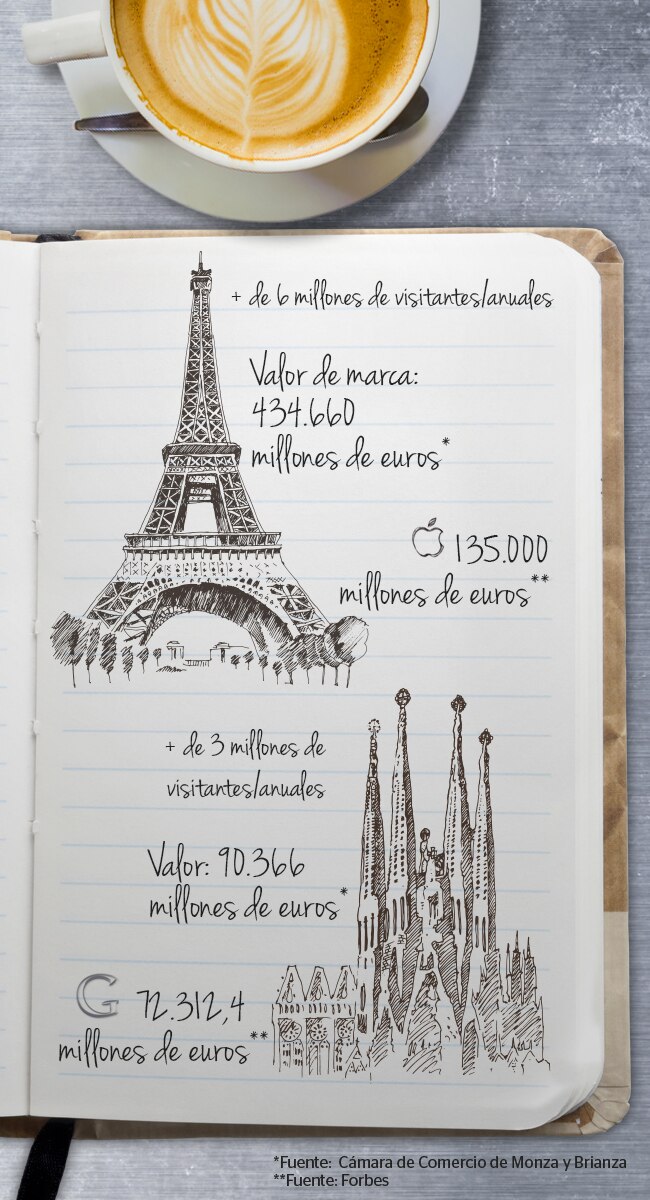 + de 6 millones de visitantes/anuales
Valor de marca:
434.660
millones de euros*
135.000
millones de euros**
+ de 3 millones de
visitantes/anuales
Valor: 90.366
millones de euros*
G 72.312,4
millones de euros**
*Fuente: Cámara de Comercio de Monza y Brianza
**Fuente: Forbes